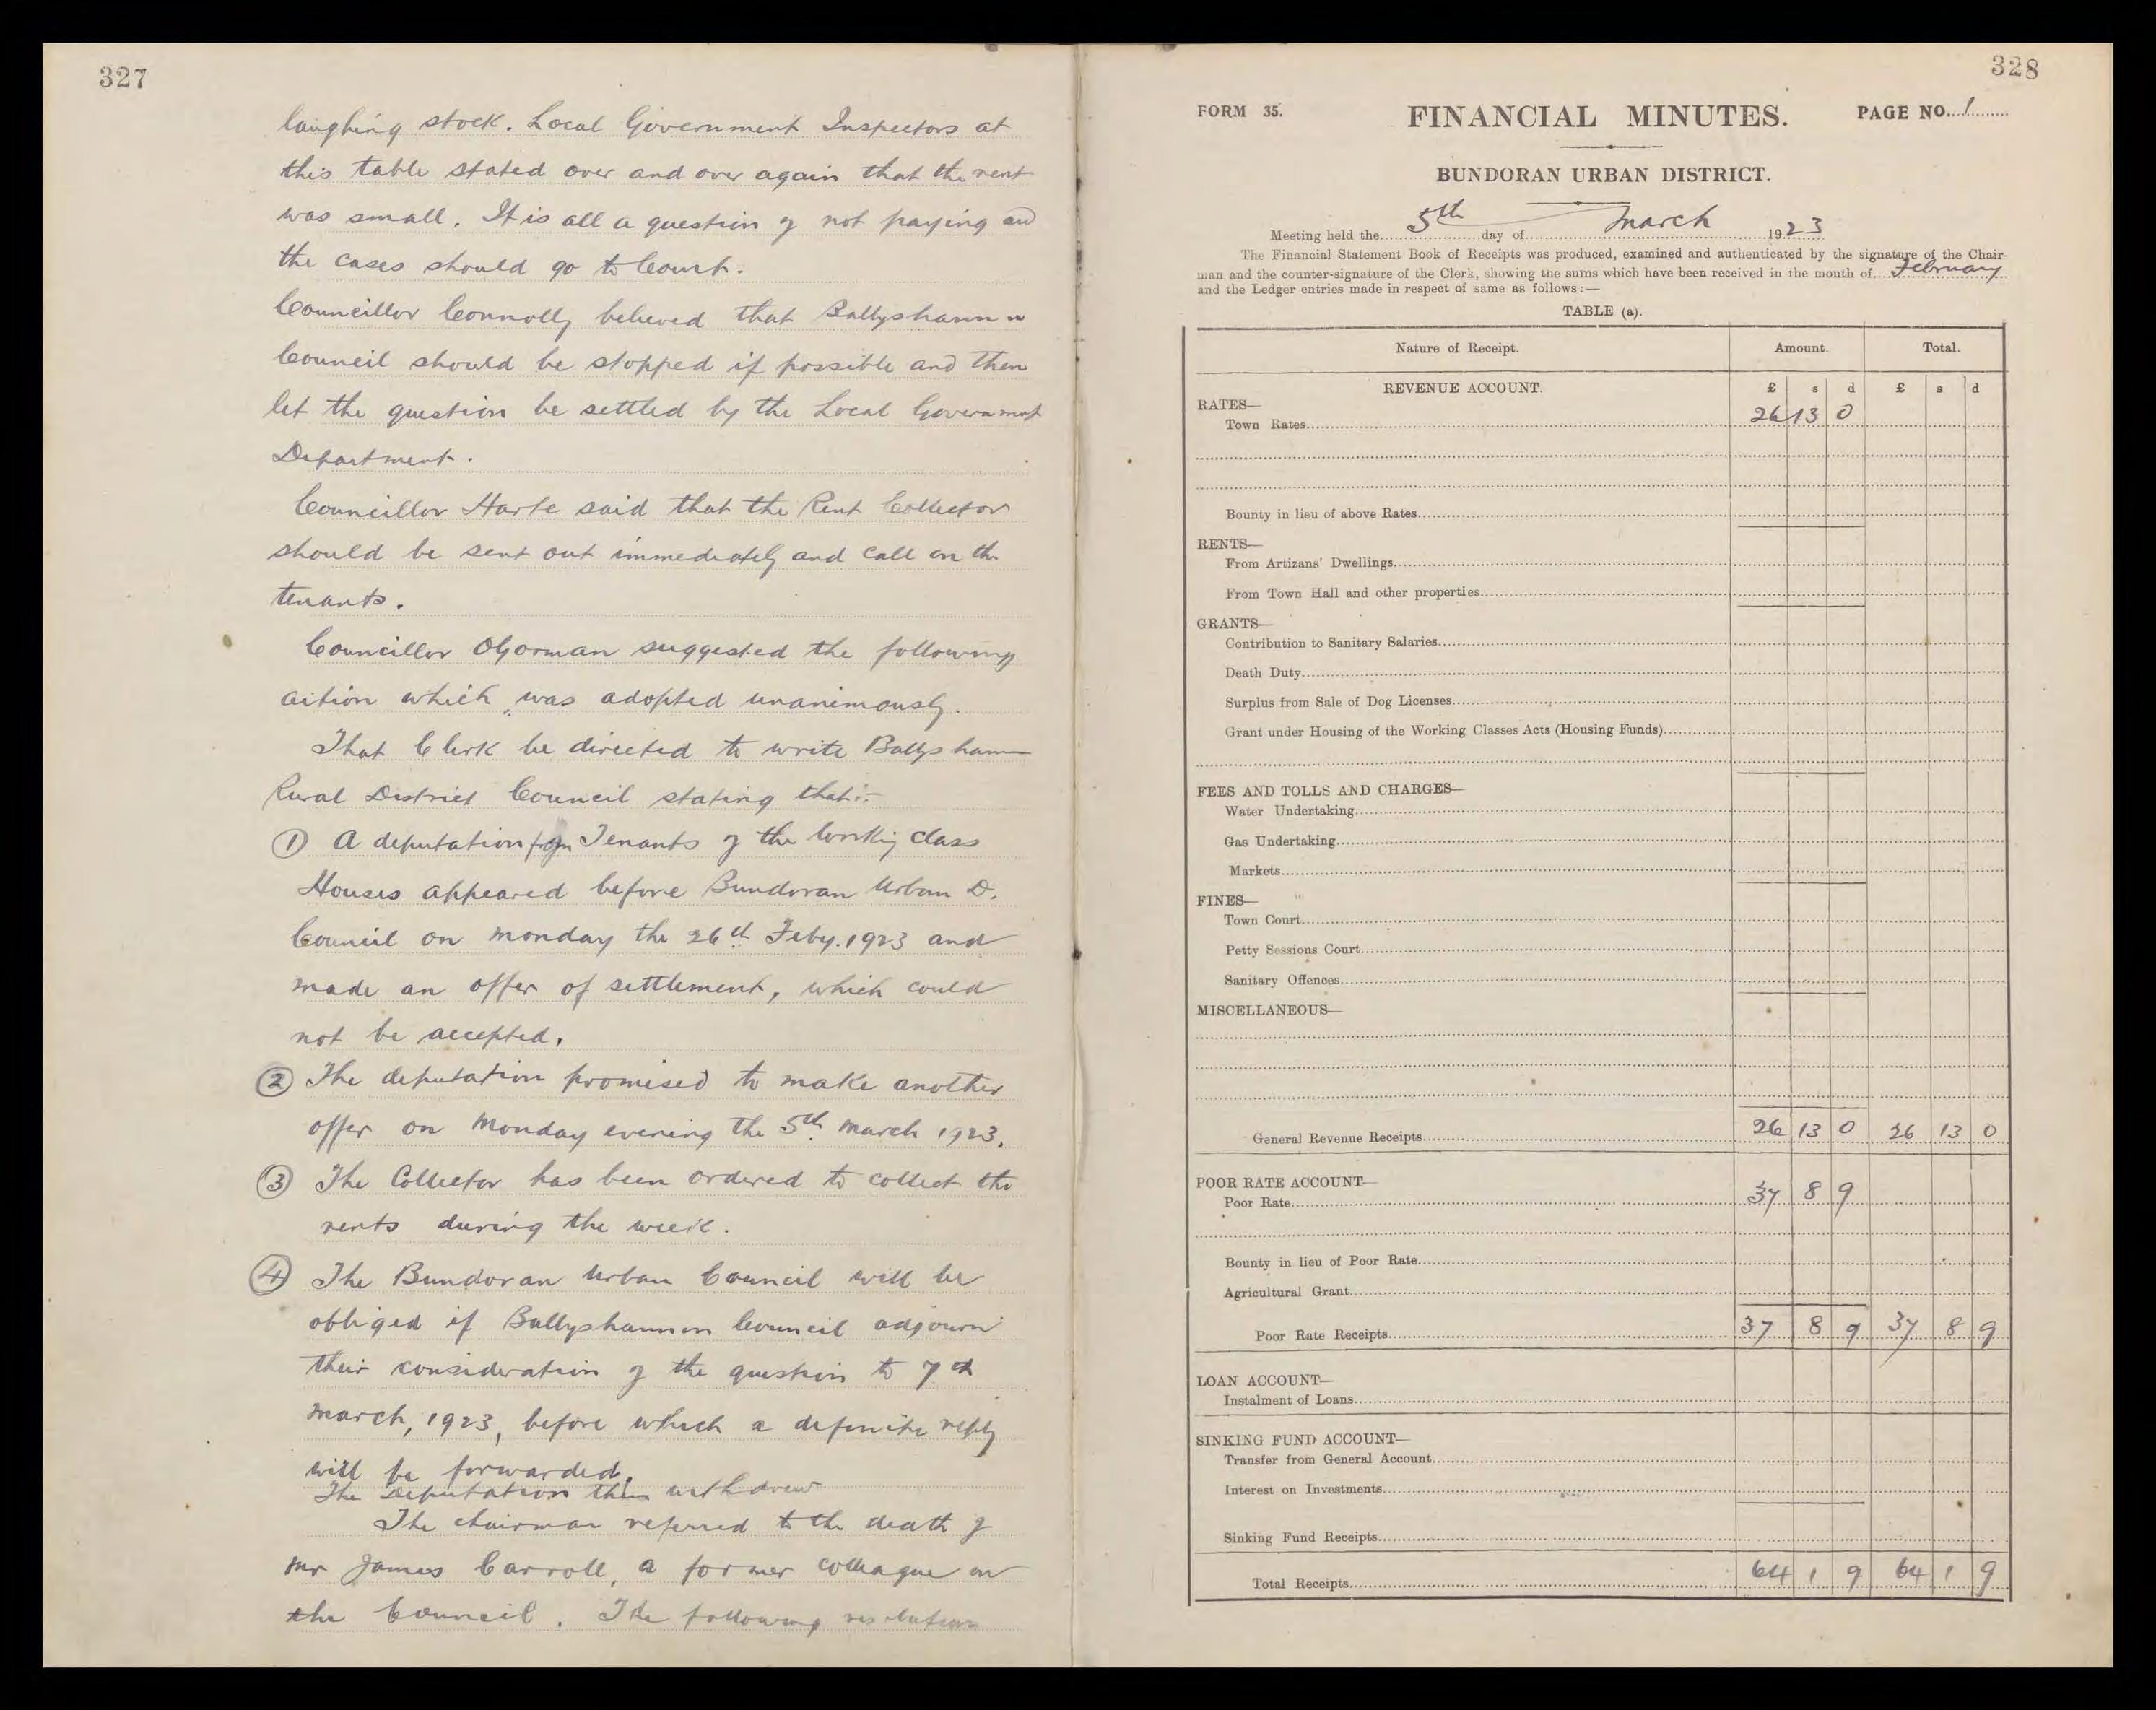 327
laughing stock. Local Government Inspectors at
this table stated over and over again that the rent
was small. It is all a question of not paying and
the cases should go to Court.
Councillor Connolly believed that Ballyshannon
Council should be stopped if possible and then
let the question be settled by the Local Government
Department.
Councillor Harte said that the Rent Collector
should be sent out immediately and call on the
tenants.
Councillor OGorman suggested the following
action which was adopted unanimously.
That Clerk be directed to write Ballyshannon
Rural District Council stating that:-
① A deputation from Tenants of the Working Class
Houses appeared before Bundoran Urban D.
Council on Monday the 26th Feby. 1923 and
made an offer of settlement, which could
not be accepted.
② The deputation promised to make another
offer on Monday evening the 5th March 1923.
③ The Collector has been ordered to collect the
rents during the week.
④ The Bundoran Urban Council will be
obliged if Ballyshannon Council adjourn
their consideration of the question to 7th
March, 1923, before which a definite reply
will be forwarded.
The Deputation then withdrew
The chairman referred to the death of
Mr James Carroll, a former colleague on
the Council. The following resolution
328
FORM 35. FINANCIAL MINUTES. PAGE NO. 1
BUNDORAN URBAN DISTRICT.
Meeting held the 5th day of March 1923
The Financial Statement Book of Receipts was produced, examined and authenticated by the signature of the Chair-
man and the counter-signature of the Clerk, showing the sums which have been received in the month of February
and the Ledger entries made in respect of same as follows:—
TABLE (a).
Nature of Receipt. Amount. Total.
REVENUE ACCOUNT. £ s d £ s d
RATES—
Town Rates 26 13 0
Bounty in lieu of above Rates
RENTS—
From Artizans' Dwellings
From Town Hall and other properties
GRANTS—
Contribution to Sanitary Salaries
Death Duty
Surplus from Sale of Dog Licenses
Grant under Housing of the Working Classes Acts (Housing Funds)
FEES AND TOLLS AND CHARGES—
Water Undertaking
Gas Undertaking
Markets
FINES—
Town Court
Petty Sessions Court
Sanitary Offences
MISCELLANEOUS—
General Revenue Receipts 26 13 0 26 13 0
POOR RATE ACCOUNT—
Poor Rate 37 8 9
Bounty in lieu of Poor Rate
Agricultural Grant
Poor Rate Receipts 37 8 9 37 8 9
LOAN ACCOUNT—
Instalment of Loans
SINKING FUND ACCOUNT—
Transfer from General Account
Interest on Investments
Sinking Fund Receipts
Total Receipts 64 1 9 64 1 9